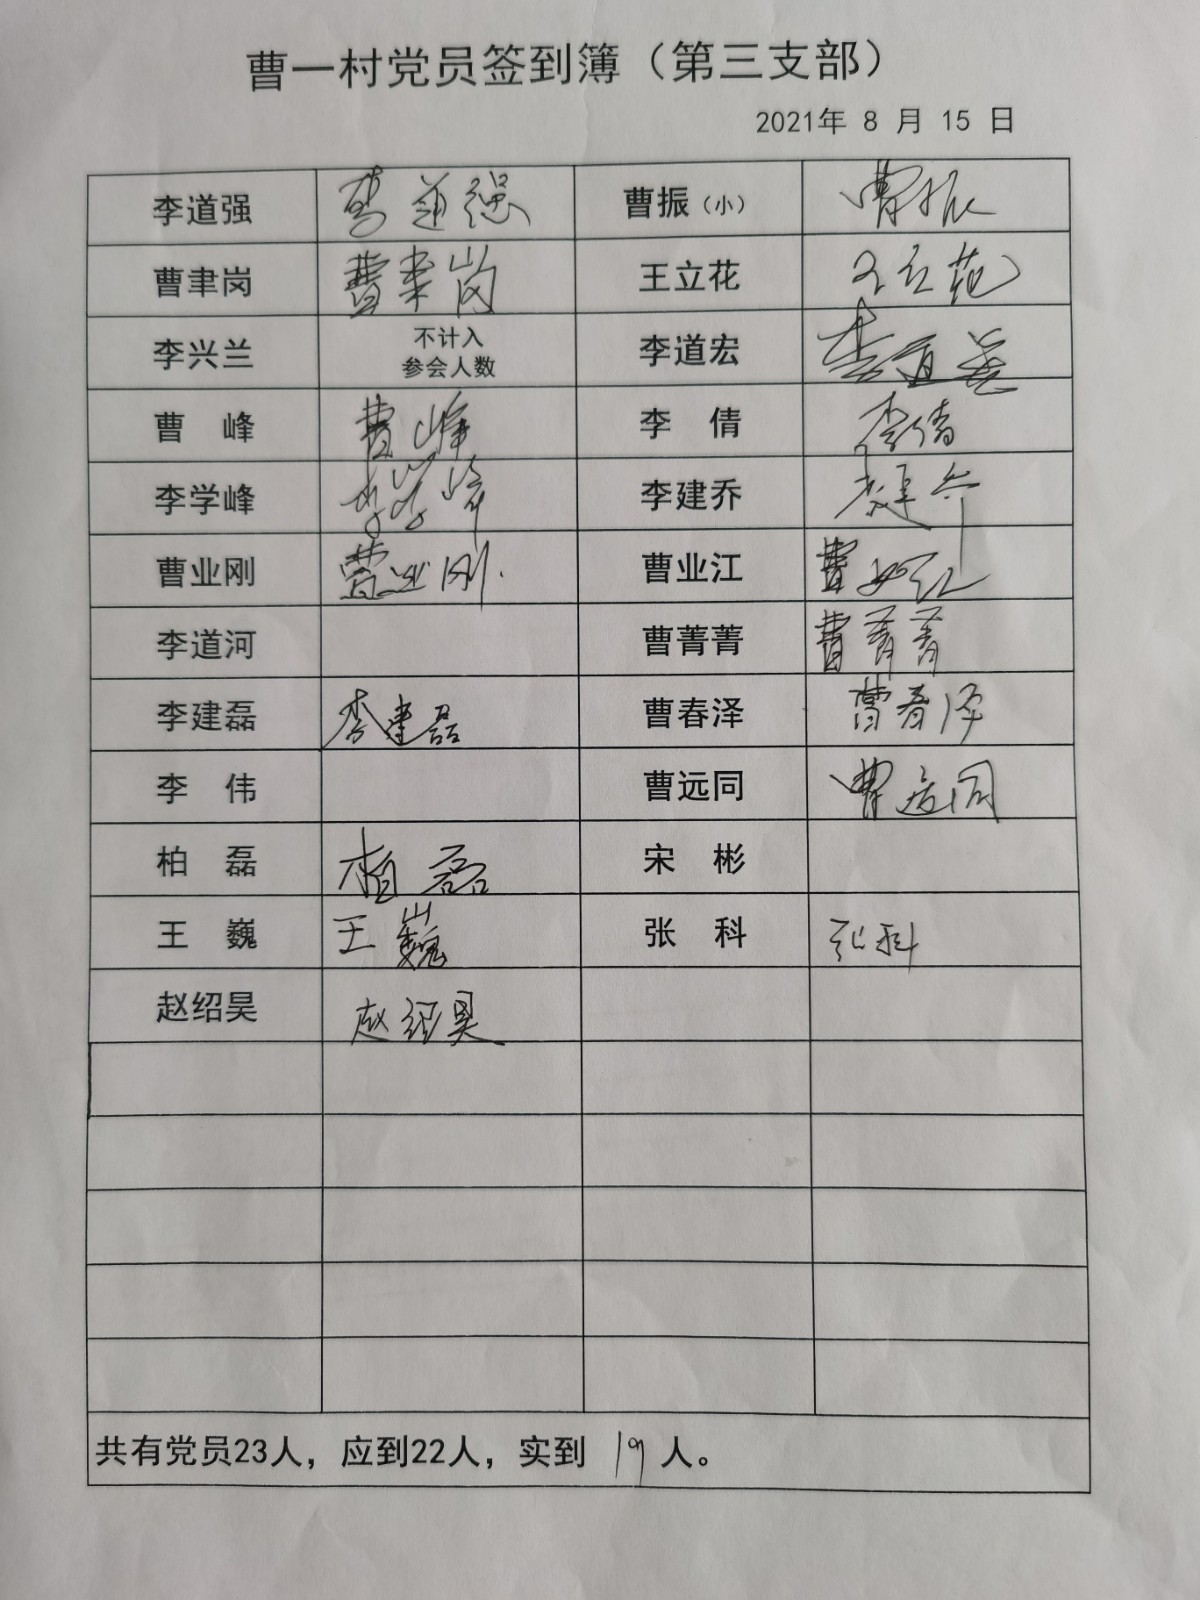 曹一村党员签到簿（第三支部）
2021年 8 月 15 日
李道强 李道强 曹振（小） 曹振
曹聿岗 曹聿岗 王立花 王立花
李兴兰 不计入
参会人数 李道宏 李道宏
曹 峰 曹峰 李 倩 李倩
李学峰 李学峰 李建乔 李建乔
曹业刚 曹业刚. 曹业江 曹业江
李道河 曹菁菁 曹菁菁
李建磊 李建磊 曹春泽 曹春泽
李 伟 曹远同 曹远同
柏 磊 柏磊 宋 彬
王 巍 王巍 张 科 张科
赵绍昊 赵绍昊
共有党员23人，应到22人，实到 19 人。